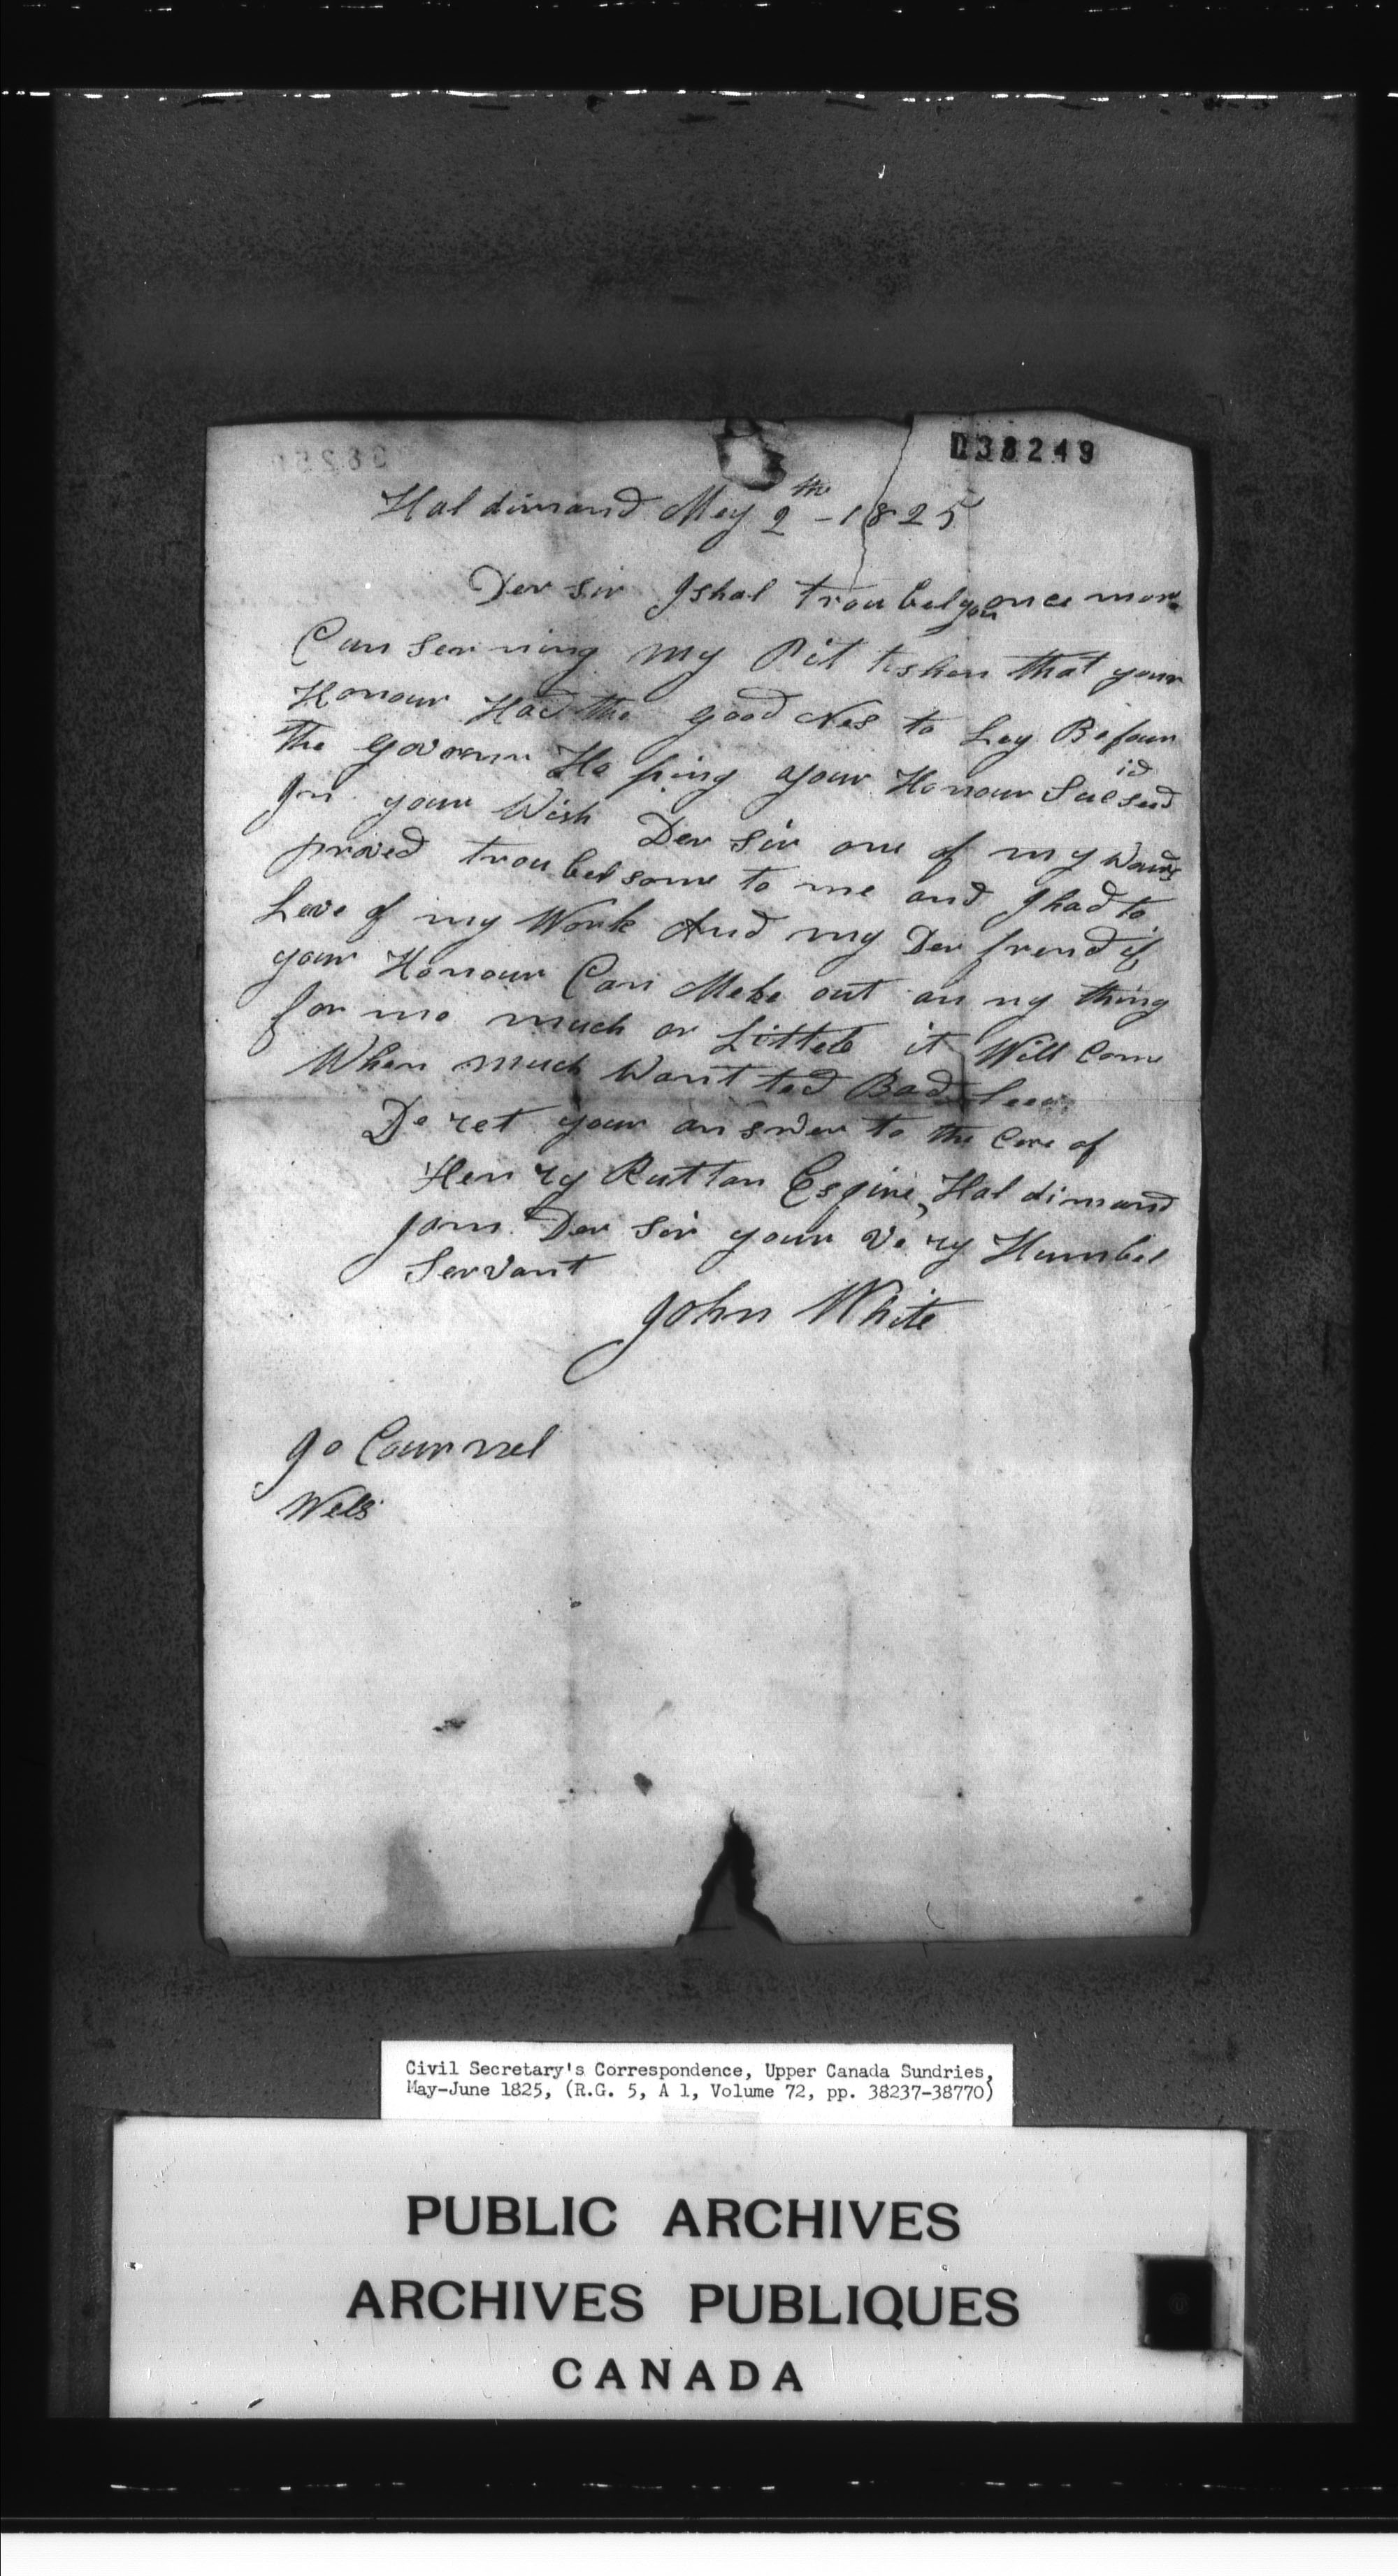 D38249
Hal dimand May 2th - 1825
Der sir I shal trou bel you once more
Con ser ning my Pit tishen that your
Honour Had the good Nes to Lay Befour
the Govrnur Ho ping your Honour Suc sed id
In your Wish Der Sir one of my Wouns
proved trou bel some to me and I had to
Leve of my Work And my Der frend if
your Honour Can Make out an ny thing
for me much or Littele it Will Come
When much Want ted Bad
De ret your an swer to the Cere of
Hen ry Ruttan Esqire, Hal dimand
I am Der Sir your Ve ry Humbel
Servant
John White
To Cournnel
Wells
Civil Secretary's Correspondence, Upper Canada Sundries,
May-June 1825, (R.G. 5, A 1, Volume 72, pp. 38237-38770)
PUBLIC ARCHIVES
ARCHIVES PUBLIQUES
CANADA